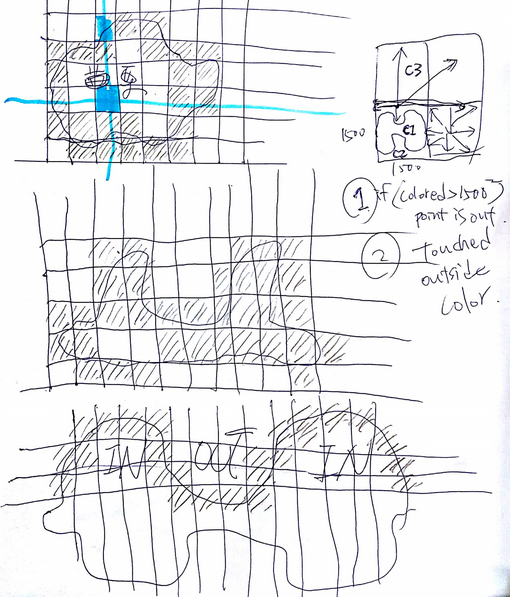 C3
C1
C2
1500
1500
① if (colored>1500)
point is out.
② Touched
outside
color.
IN OUT IN